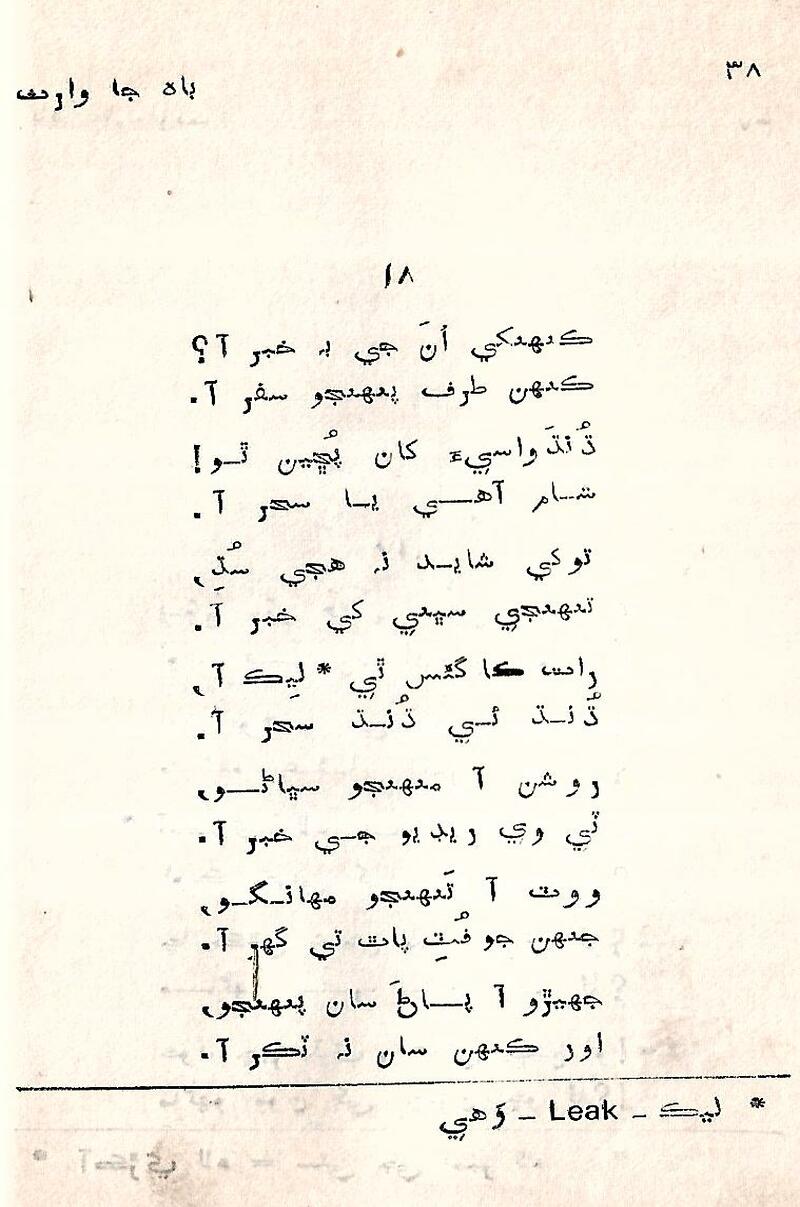 ٣٨
باهه جا وارث
١٨
ڪنهنکي اُنَ جي بہ خبر آ؟
ڪنهن طرف پنهنجو سفر آ.
ڌُنڌَ واسيءَ کان پُڇين ٿو!
شام آهي يا سحر آ.
توکي شايد نہ هجي سُڌِ،
تنهنجي سيني کي خبر آ.
رات ڪا گئس ٿي * لِيڪ آ،
ڌُنڌ ئي ڌُنڌ سحر آ.
روشن آ منهنجو سڀاڻو،
ٽي وي ريڊيو جي خبر آ.
ووٽ آ تَنهنجو مهانگو،
جنهن جو فُٽِ پاٿ تي گهر آ.
جهيڙو آ پاڻَ سان پنهنجو،
اور ڪنهن سان نہ ٽڪر آ.
* ليڪ - Leak - وَهي